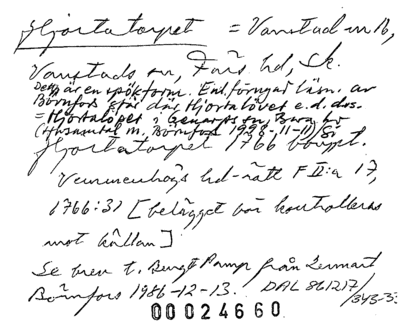 Hjortatorpet = Vanstad nr 16,
Vanstads sn, Färs hd, Sk.
Detta är en spökform. Enl. förnyad läsn. av
Börnfors står där Hjortalövet e.d. dvs.
= Hjortalöpet i Genarps sn, Bara hd
(tfnsamtal m. Börnfors 1998-11-11)/Så
Hjortatorpet 1766 bouppt.
Vemmenhögs hd-rätt F II:a 17,
1766:31 [belägget bör kontrolleras
mot källan]
Se brev t. Bengt Pamp från Lennart
Börnfors 1986-12-13. DAL 861217/
343-33
00024660